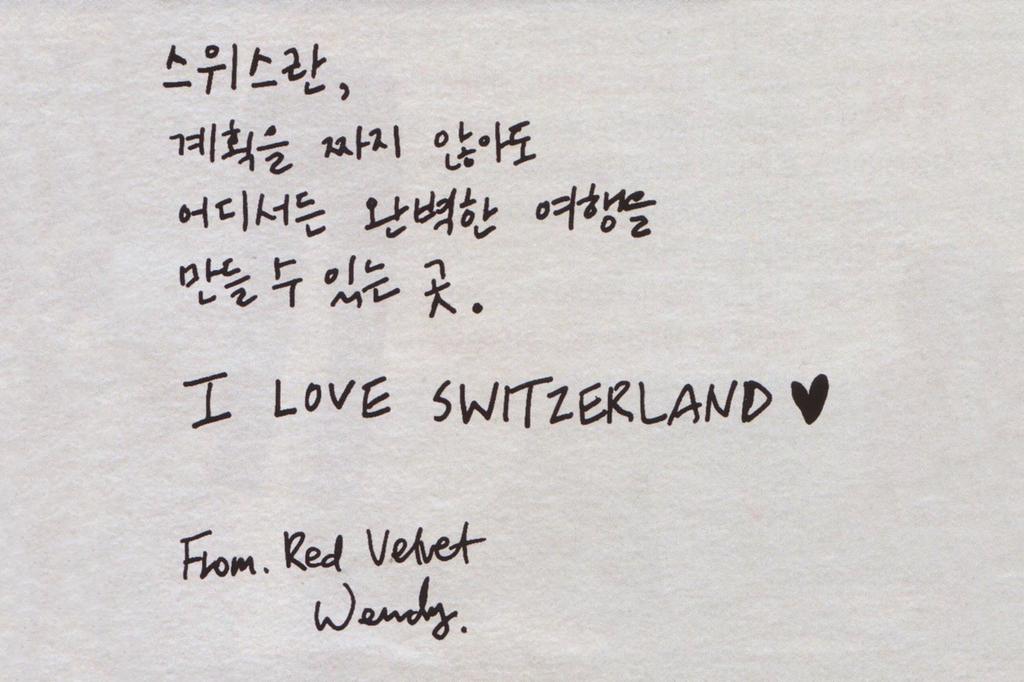 스위스란,
계획을 짜지 않아도
어디서든 완벽한 여행을
만들 수 있는 곳.
I LOVE SWITZERLAND ♥
From. Red Velvet
Wendy.